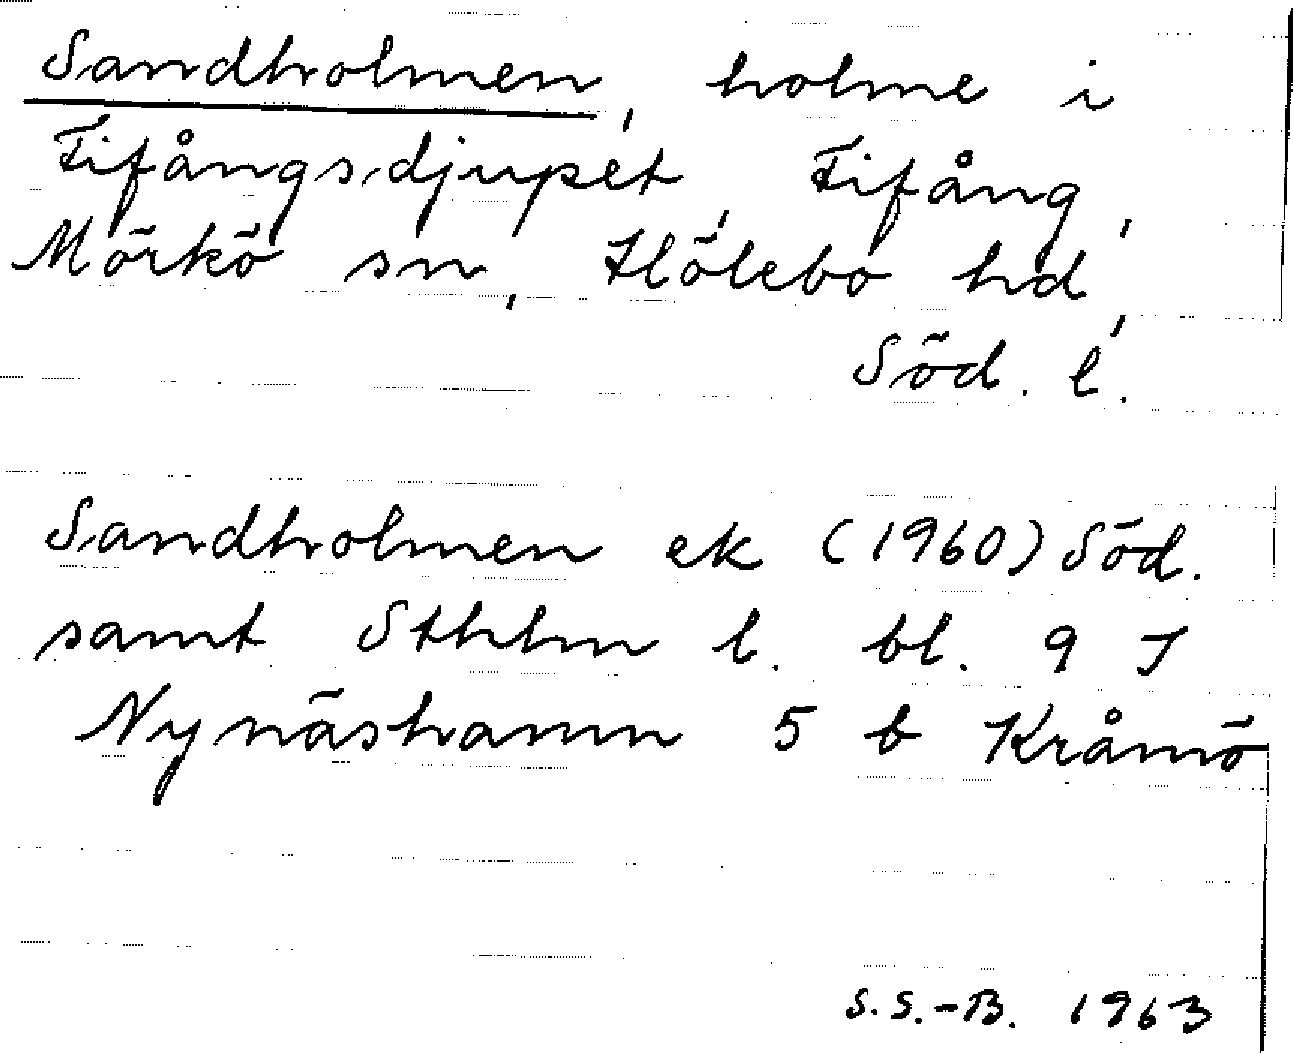 Sandholmen, holme i
Fifångsdjupet, Fifång,
Mörkö sn, Hölebo hd,
Söd. l.
Sandholmen ek (1960) Söd.
samt Sthlm l. bl. 9 J
Nynäshamn 5 b Kråmö
S.S.-B. 1963